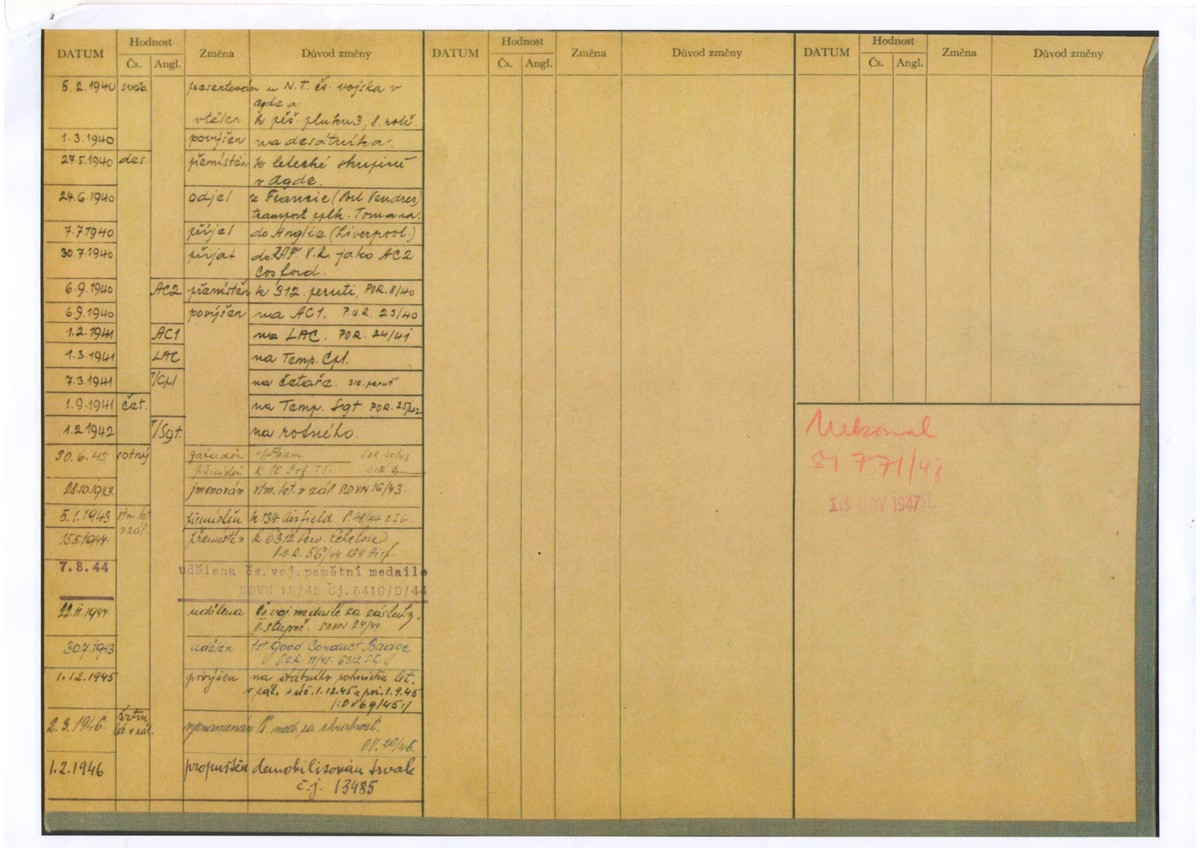 DATUM Hodnost Změna Důvod změny DATUM Hodnost Změna Důvod změny DATUM Hodnost Změna Důvod změny
Čs. Angl. Čs. Angl. Čs. Angl.
5.2.1940 presentován u N.T. čs. vojska v
Agde a
vtělen k pěš. pluku 3, 8. rotě.
1.3.1940 povýšen na desátníka.
27.5.1940 des. přemístěn k letecké skupině
v Agde.
24.6.1940 odjel z Francie (Port Vendres)
transport pplk. Tomana.
7.7.1940 přijel do Anglie (Liverpool)
30.7.1940 přijat do RAF V.R. jako AC2
Cosford.
6.9.1940 AC2 přemístěn k 312. peruti, POR. 8/40
6.9.1940 povýšen na AC1. P.O.R. 23/40
1.2.1941 AC1 na LAC. POR. 24/41
1.3.1941 LAC na Temp. Cpl.
7.3.1941 T/Cpl na četaře. 312. peruť
1.9.1941 čet. na Temp. Sgt. POR. 25/42
1.2.1942 T/Sgt. na rotného.
30.6.42 rotný zařaděn
přemístěn k
28.10.1943 jmenován rtm. let. v zál. RDVN 16/43.
5.1.1943 rtm. let. v zál. přemístěn k 134 Airfield
15.5.1944 přemístěn k 6312 Serv. Echelon
P.O.R. 56/44 134 Airf
7.8.44 udělena čs. voj. pamětní medaile
čj. 6410/D/44
22.11.1944 udělena čs. voj. medaile za zásluhy,
II. stupně. RDVN 24/44
30.7.1943 udělen 1st Good Conduct Badge
P.O.R. 11/45 6312 SE
1.12.1945 povýšen na štábního rotmistra let.
v zál. s úč. 1.12.45 a poř. 1.9.45
2.3.1946. šrtm. let. v zál. vyznamenán Čs. med. za chrabrost.
1.2.1946 propuštěn demobilizován trvale
č.j. 13485
Nekonal
81 771/47
NOV 1947